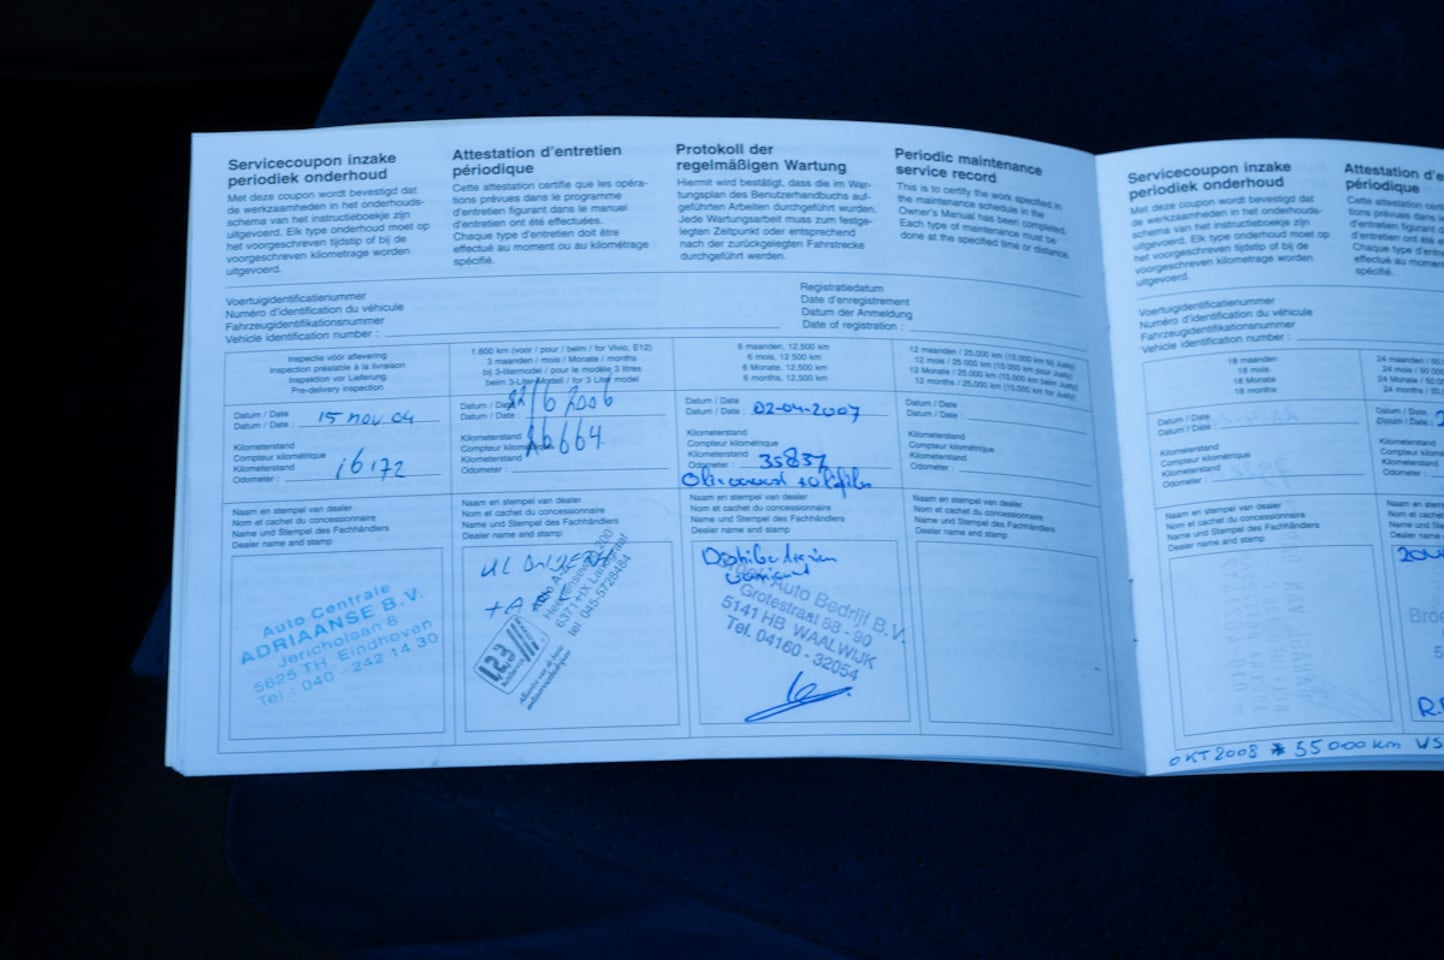 Servicecoupon inzake
periodiek onderhoud
Met deze coupon wordt bevestigd dat
de werkzaamheden in het onderhouds-
schema van het instructieboekje zijn
uitgevoerd. Elk type onderhoud moet op
het voorgeschreven tijdstip of bij de
voorgeschreven kilometrage worden
uitgevoerd.
Attestation d'entretien
périodique
Cette attestation certifie que les opéra-
tions prévues dans le programme
d'entretien figurant dans le manuel
d'entretien ont été effectuées.
Chaque type d'entretien doit être
effectué au moment ou au kilométrage
spécifié.
Protokoll der
regelmäßigen Wartung
Hiermit wird bestätigt, dass die im War-
tungsplan des Benutzerhandbuchs auf-
geführten Arbeiten durchgeführt wurden.
Jede Wartungsarbeit muss zum festge-
legten Zeitpunkt oder entsprechend
nach der zurückgelegten Fahrstrecke
durchgeführt werden.
Periodic maintenance
service record
This is to certify the work specified in
the maintenance schedule in the
Owner's Manual has been completed.
Each type of maintenance must be
done at the specified time or distance.
Voertuigidentificatienummer
Numéro d'identification du véhicule
Fahrzeugidentifikationsnummer
Vehicle identification number :
Registratiedatum
Date d'enregistrement
Datum der Anmeldung
Date of registration :
Inspectie vóór aflevering
Inspection préalable à la livraison
Inspektion vor Lieferung
Pre-delivery inspection
Datum / Date
Datum / Date : 15 nov 04
Kilometerstand
Compteur kilométrique
Kilometerstand
Odometer : 16172
Naam en stempel van dealer
Nom et cachet du concessionnaire
Name und Stempel des Fachhändlers
Dealer name and stamp
Auto Centrale
ADRIAANSE B.V.
Jericholaan 8
5625 TH Eindhoven
Tel.: 040 - 242 14 30
1.600 km (voor / pour / beim / for Vivio, E12)
3 maanden / mois / Monate / months
bij 3-litermodel / pour le modèle 3 litres
beim 3-Liter-Modell / for 3 Liter model
Datum / Date
Datum / Date : /6 2006
Kilometerstand
Compteur kilométrique
Kilometerstand 26664
Odometer :
Naam en stempel van dealer
Nom et cachet du concessionnaire
Name und Stempel des Fachhändlers
Dealer name and stamp
tel. 045-5728484
123
6 maanden, 12.500 km
6 mois, 12 500 km
6 Monate, 12.500 km
6 months, 12,500 km
Datum / Date
Datum / Date : 02-04-2007
Kilometerstand
Compteur kilométrique
Kilometerstand
Odometer : 35837
Naam en stempel van dealer
Nom et cachet du concessionnaire
Name und Stempel des Fachhändlers
Dealer name and stamp
Auto Bedrijf B.V.
Grotestraat 88 - 90
5141 HB WAALWIJK
Tel. 04160 - 32054
12 maanden / 25.000 km (15.000 km bij Justy)
12 mois / 25 000 km (15 000 km pour Justy)
12 Monate / 25.000 km (15.000 km beim Justy)
12 months / 25,000 km (15,000 km for Justy)
Datum / Date
Datum / Date :
Kilometerstand
Compteur kilométrique
Kilometerstand
Odometer :
Naam en stempel van dealer
Nom et cachet du concessionnaire
Name und Stempel des Fachhändlers
Dealer name and stamp
Servicecoupon inzake
periodiek onderhoud
Met deze coupon wordt bevestigd dat
de werkzaamheden in het onderhouds-
schema van het instructieboekje zijn
uitgevoerd. Elk type onderhoud moet op
het voorgeschreven tijdstip of bij de
voorgeschreven kilometrage worden
uitgevoerd.
Attestation d'e
périodique
Cette attestation certi
tions prévues dans le
d'entretien figurant da
d'entretien ont été e
Chaque type d'entre
effectué au momen
spécifié.
Voertuigidentificatienummer
Numéro d'identification du véhicule
Fahrzeugidentifikationsnummer
Vehicle identification number :
18 maanden
18 mois
18 Monate
18 months
Datum / Date
Datum / Date :
Kilometerstand
Compteur kilométrique
Kilometerstand
Odometer :
Naam en stempel van dealer
Nom et cachet du concessionnaire
Name und Stempel des Fachhändlers
Dealer name and stamp
24 maanden / 50.0
24 mois / 50 000
24 Monate / 50.0
24 months / 50,
Datum / Date
Datum / Date : 2
Kilometerstand
Compteur kilom
Kilometerstand
Odometer :
Naam en stem
Nom et cachet
Name und Ste
Dealer name
Broe
5
OKT 2008 * 55000 km